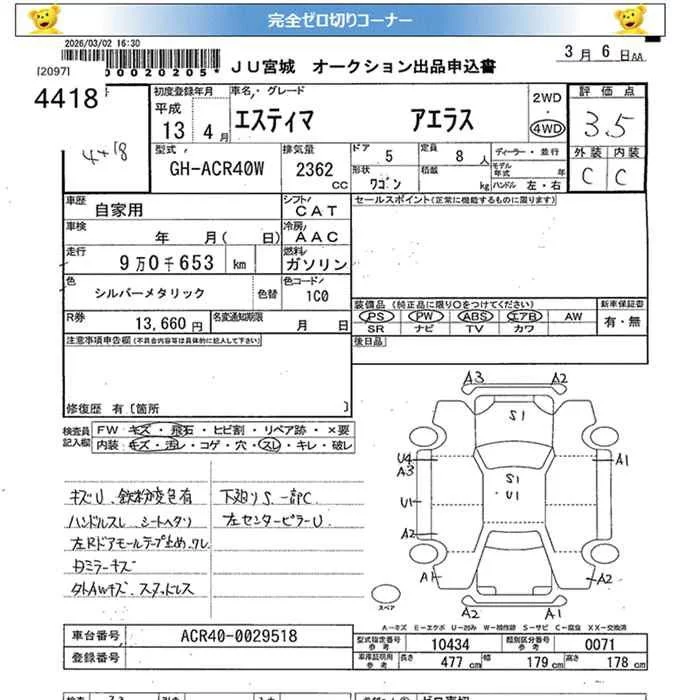 完全ゼロ切りコーナー
2026/03/02 16:30
[2097]
00020205*
JU宮城 オークション出品申込書
3月 6日AA
4418
4418
初度登録年月
平成
13 4月
車名/グレード
エスティマ アエラス
2WD
4WD
評価点
3.5
型式
GH-ACR40W
排気量
2362
CC
ドア 5
定員 8人
形状 ワゴン
積載 kg
ディーラー・並行
モデル年式 年
ハンドル 左・右
外装 内装
C C
車歴
自家用
シフト
CAT
セールスポイント(正常に機能するものに限ります)
車検
年 月( 日)
冷房
AAC
走行
9万0千653 km
燃料
ガソリン
色
シルバーメタリック
色替
色コード
1C0
装備品(純正品に限り○をつけてください)
新車保証書
PS PW ABS エアB AW
有・無
SR ナビ TV カワ
R券
13,660円
名変通知期限
月 日
後日品
注意事項申告欄(不具合内容等は具体的に記入して下さい)
修復歴 有〔箇所 〕
検査員記入欄
FW キズ・飛石・ヒビ割・リペア跡・×要
内装:キズ・汚レ・コゲ・穴・スレ・キレ・破レ
キズU、鉄粉変色有
ハンドルスレ、シートヘタリ
左Rドアモールテープ止め、ワレ
日ミラーキズ
タトAWキズ、スタッドレス
下廻りS、一部PC
左センターピラーU
A3 A2
S1
U4
A3
A1
S1
U1
U1
A2
A1
A2
A2 A1
スペア
A-キズ E-エクボ U-凹み W-補修跡 S-サビ C-腐食 XX-交換済
車台番号
ACR40-0029518
登録番号
型式指定番号
参考
10434
類別区分番号
参考
0071
車庫証明用
参考
長さ 477 cm
幅 179 cm
高さ 178 cm